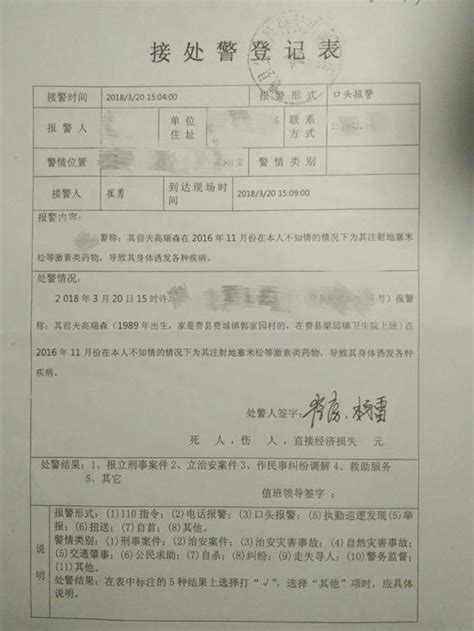 接处警登记表
接警时间 2018/3/20 15:04:00 报警形式 口头报警
报警人 单位住址 联系方式
警情位置 301室 警情类别
接警人 崔勇 到达现场时间 2018/3/20 15:09:00
报警内容:
警称：其前夫高瑞森在 2016 年 11 月份在本人不知情的情况下为其注射地塞米
松等激素类药物，导致其身体诱发各种疾病。
处警情况:
2 018 年 3 月 20 日 15 时许 号）报警
称：其前夫高瑞森（1989 年出生，家是费县费城镇郭家园村的，在费县梁邱镇卫生院上班）在
2016 年 11 月份在本人不知情的情况下为其注射地塞米松等激素类药物，导致其身体诱发各种
疾病。
处警人签字:
死 人，伤 人，直接经济损失 元
处警结果：1、报立刑事案件 2、立治安案件 3、作民事纠纷调解 4、救助服务
5、其它
值班领导签字：
说明
报警形式：(1)110 指令；(2)电话报警；(3)口头报警；(5)执勤巡逻发现(5)举
报；(6)扭送；(7)自首；(8)其他。
警情类别：(1)刑事案件；(2)治安案件；(3)治安灾害事故；(4)自然灾害事故；
(5)交通肇事；(6)公民求助；(7)自杀；(8)纠纷；(9)走失寻人；(10)警务监督；
(11)其他。
处警结果：在表中标注的 5 种结果上选择打“√”，选择“其他”项时，应具体
说明。